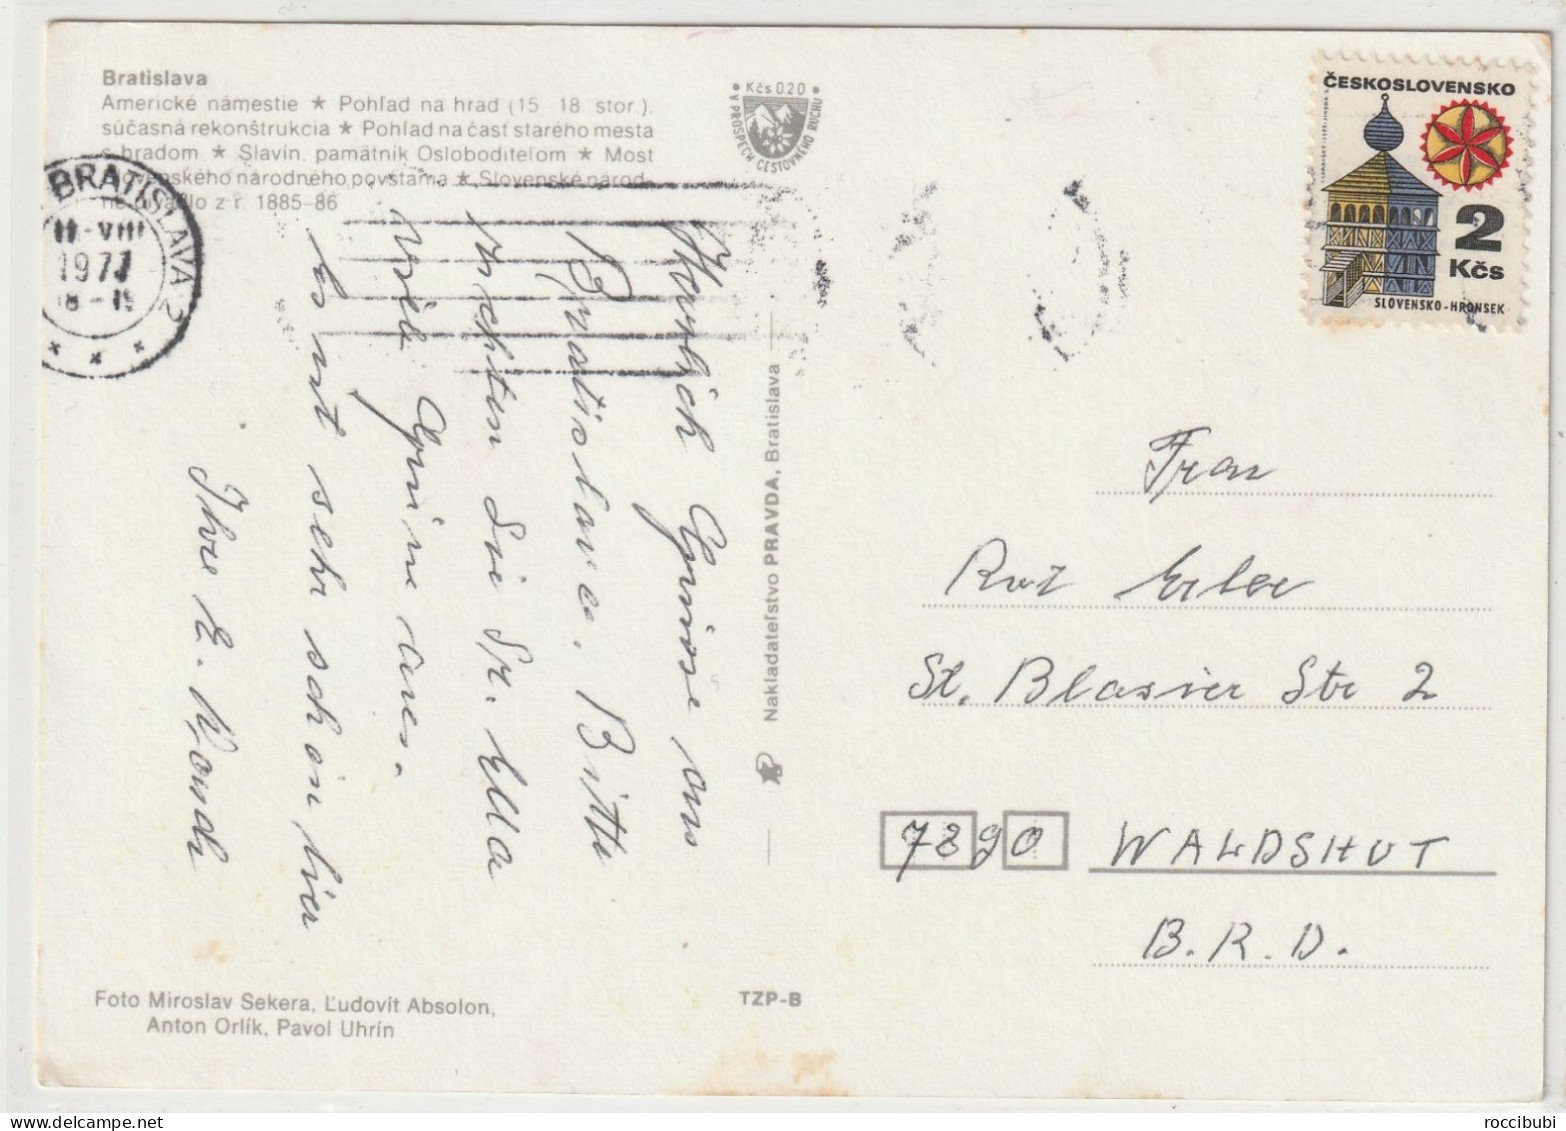 Bratislava
Americké námestie ★ Pohľad na hrad (15-18. stor.),
súčasná rekonštrukcia ★ Pohľad na časť starého mesta
s hradom ★ Slavín, pamätník Osloboditeľom ★ Most
Slovenského národného povstania ★ Slovenské národ-
né divadlo z r. 1885-86
Kčs 0,20
V PROSPECH CESTOVNÉHO RUCHU
ČESKOSLOVENSKO
2
Kčs
SLOVENSKO-HRONSEK
BRATISLAVA 2
VIII
1977
18-19
Herzlich Grüsse aus
Bratislava. Bitte
richten Sie Sr. Ella
viele Grüsse aus.
Es ist sehr schön hier
Ihre E.
Nakladateľstvo PRAVDA, Bratislava
Frau
St. Blasier Str 2
7890 WALDSHUT
B.R.D.
Foto Miroslav Sekera, Ľudovít Absolon,
Anton Orlík, Pavol Uhrín
TZP-B
roccibubi